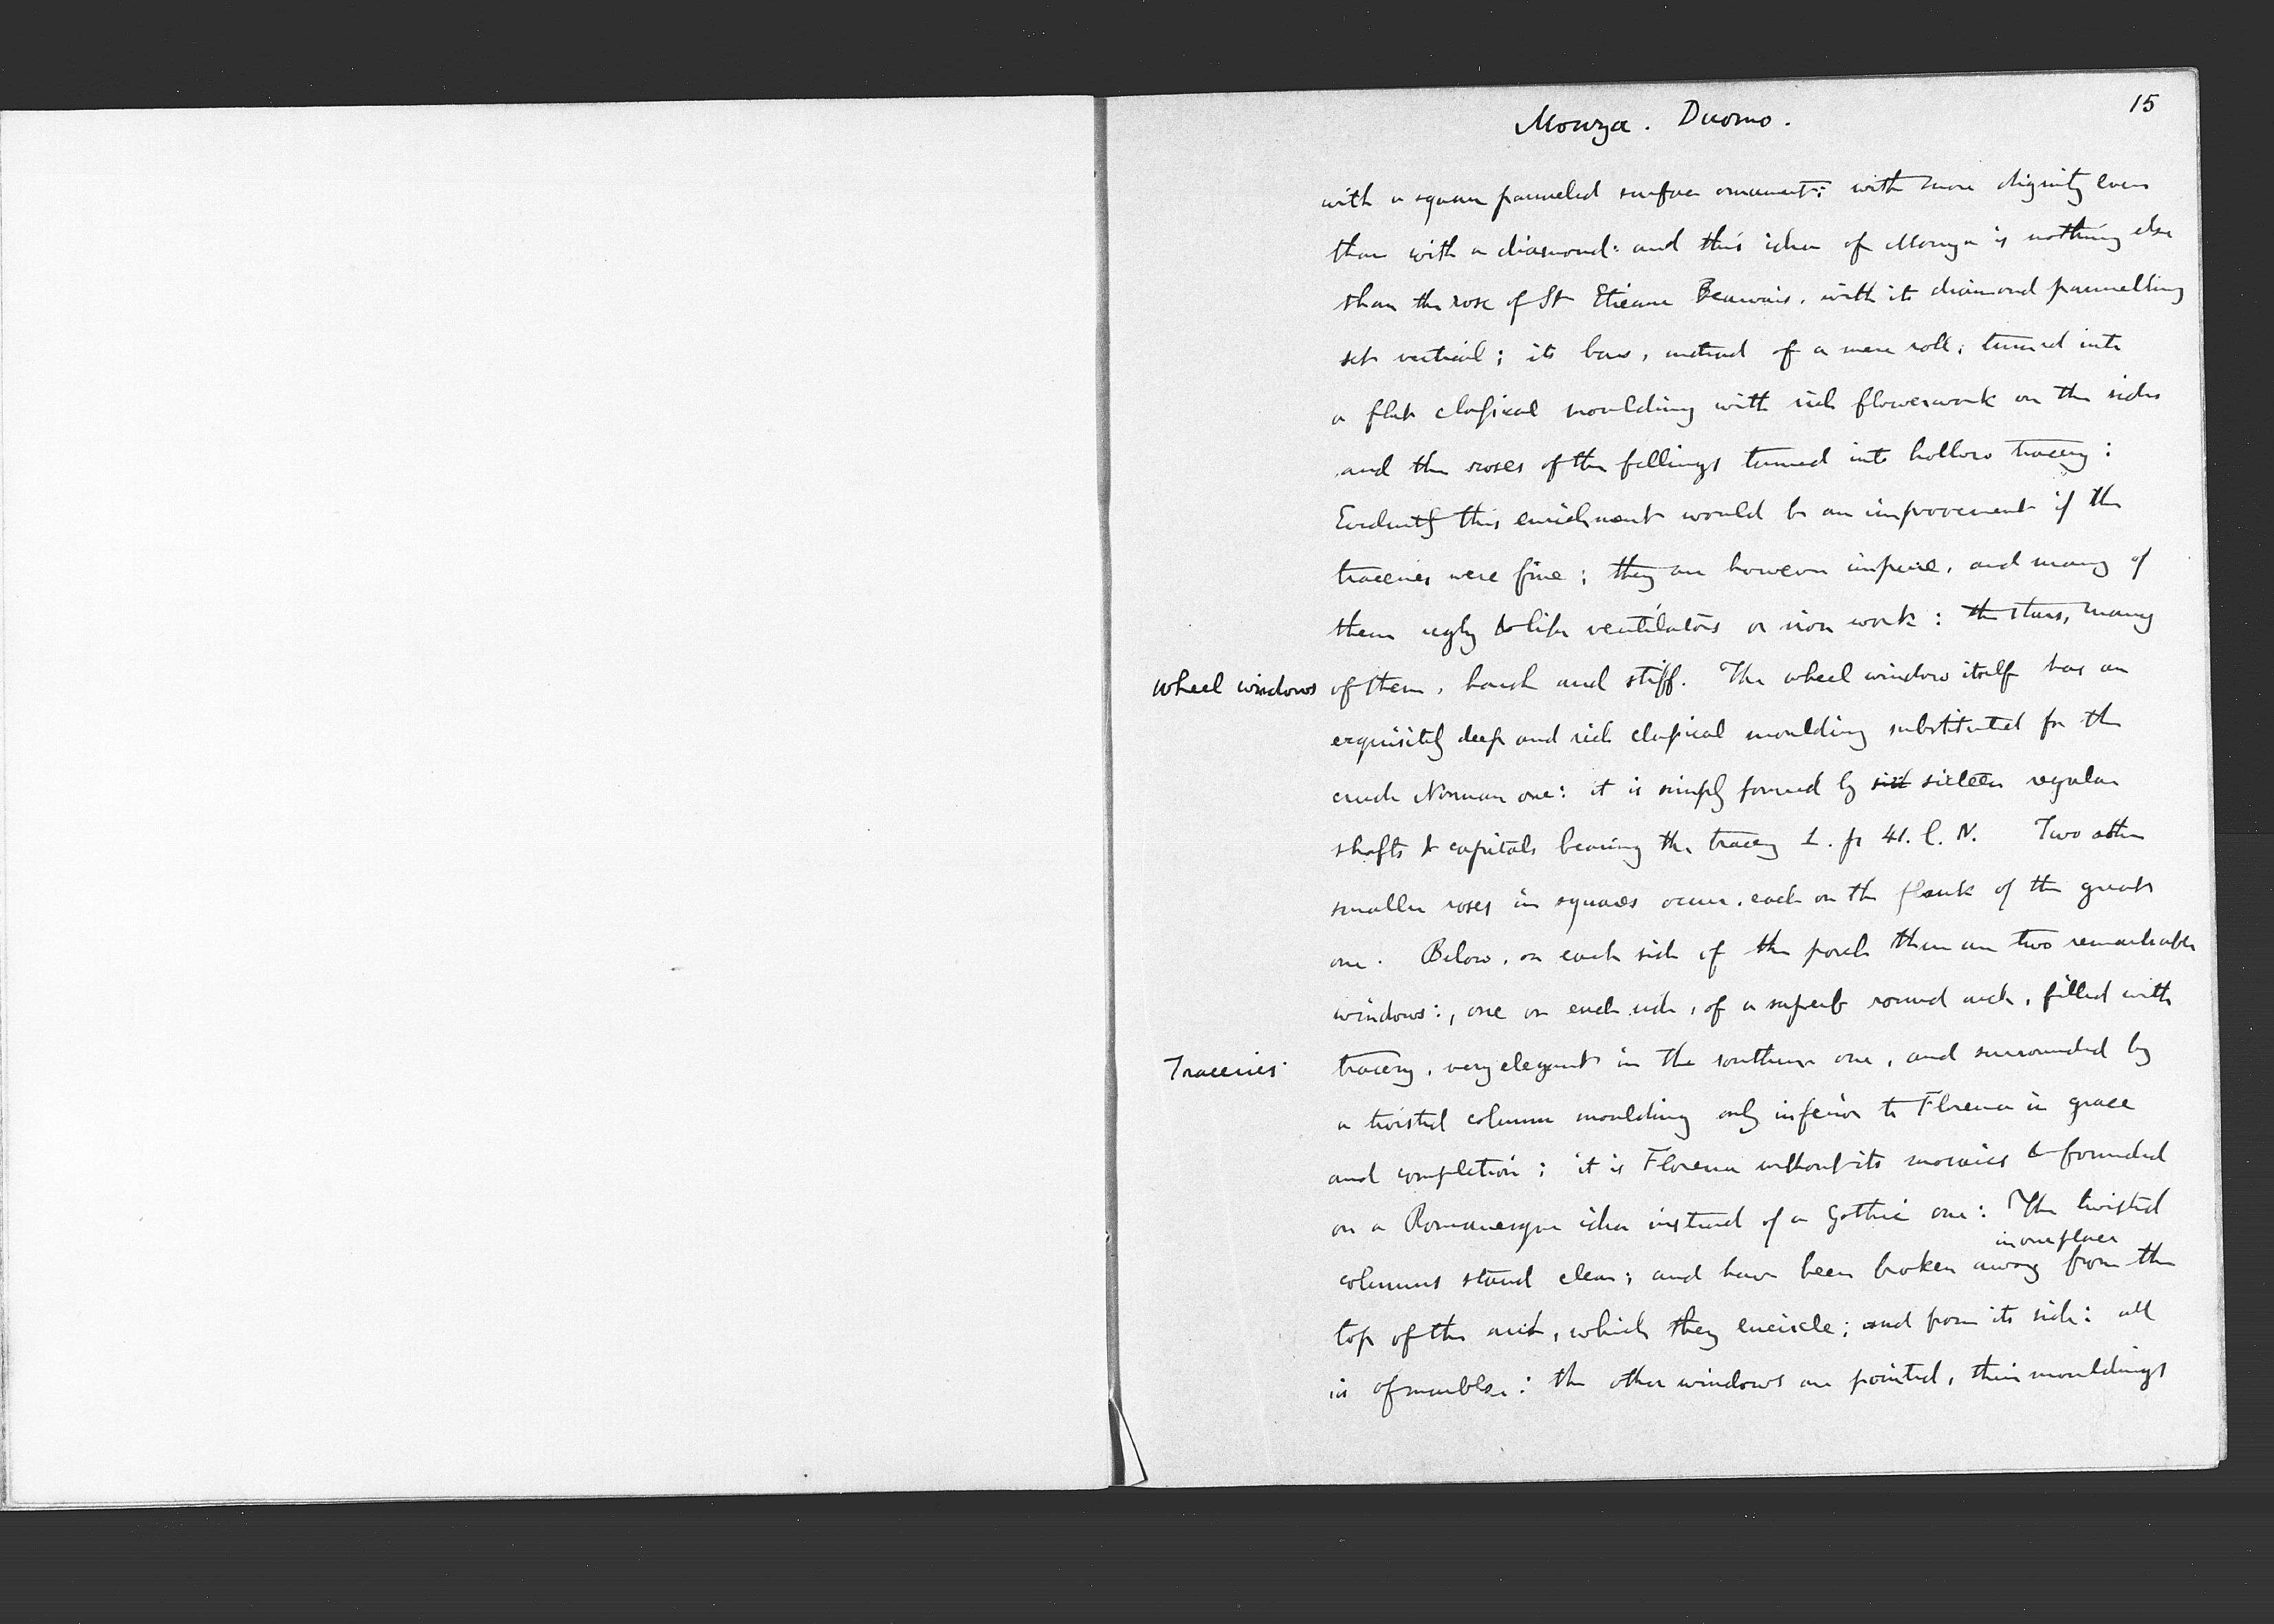 15
Monza. Duomo.
with a square panneled surface ornament: with more dignity even
than with a diamond: and this idea of Monza is nothing else
than the rose of St Etienne Beauvais, with its diamond pannelling
set vertical; its bars, instead of a mere roll, turned into
a flat classical moulding with rich flowerwork on the sides
and the roses of the fillings turned into hollow tracery:
Evidently this enrichment would be an improvement if the
traceries were fine; they are however impure, and many of
them ugly & like ventilators or iron work: the stars, many
Wheel windows of them, harsh and stiff. The wheel window itself has an
exquisitely deep and rich classical moulding substituted for the
crude Norman one: it is simply formed by sixt sixteen regular
shafts & capitals bearing the tracery 1. p 41. l. N. Two other
smaller roses in squares occur, each on the flank of the great
one. Below, on each side of the porch there are two remarkable
windows:, one on each side, of a superb round arch, filled with
Traceries. tracery, very elegant in the southern one, and surrounded by
a twisted column moulding only inferior to Florence in grace
and completion; it is Florence without its mosaics & founded
on a Romanesque idea instead of a Gothic one: The twisted
in one place
columns stand clear; and have been broken away from the
top of the arch, which they encircle; and from its side: all
is of marble: the other windows are pointed, their mouldings